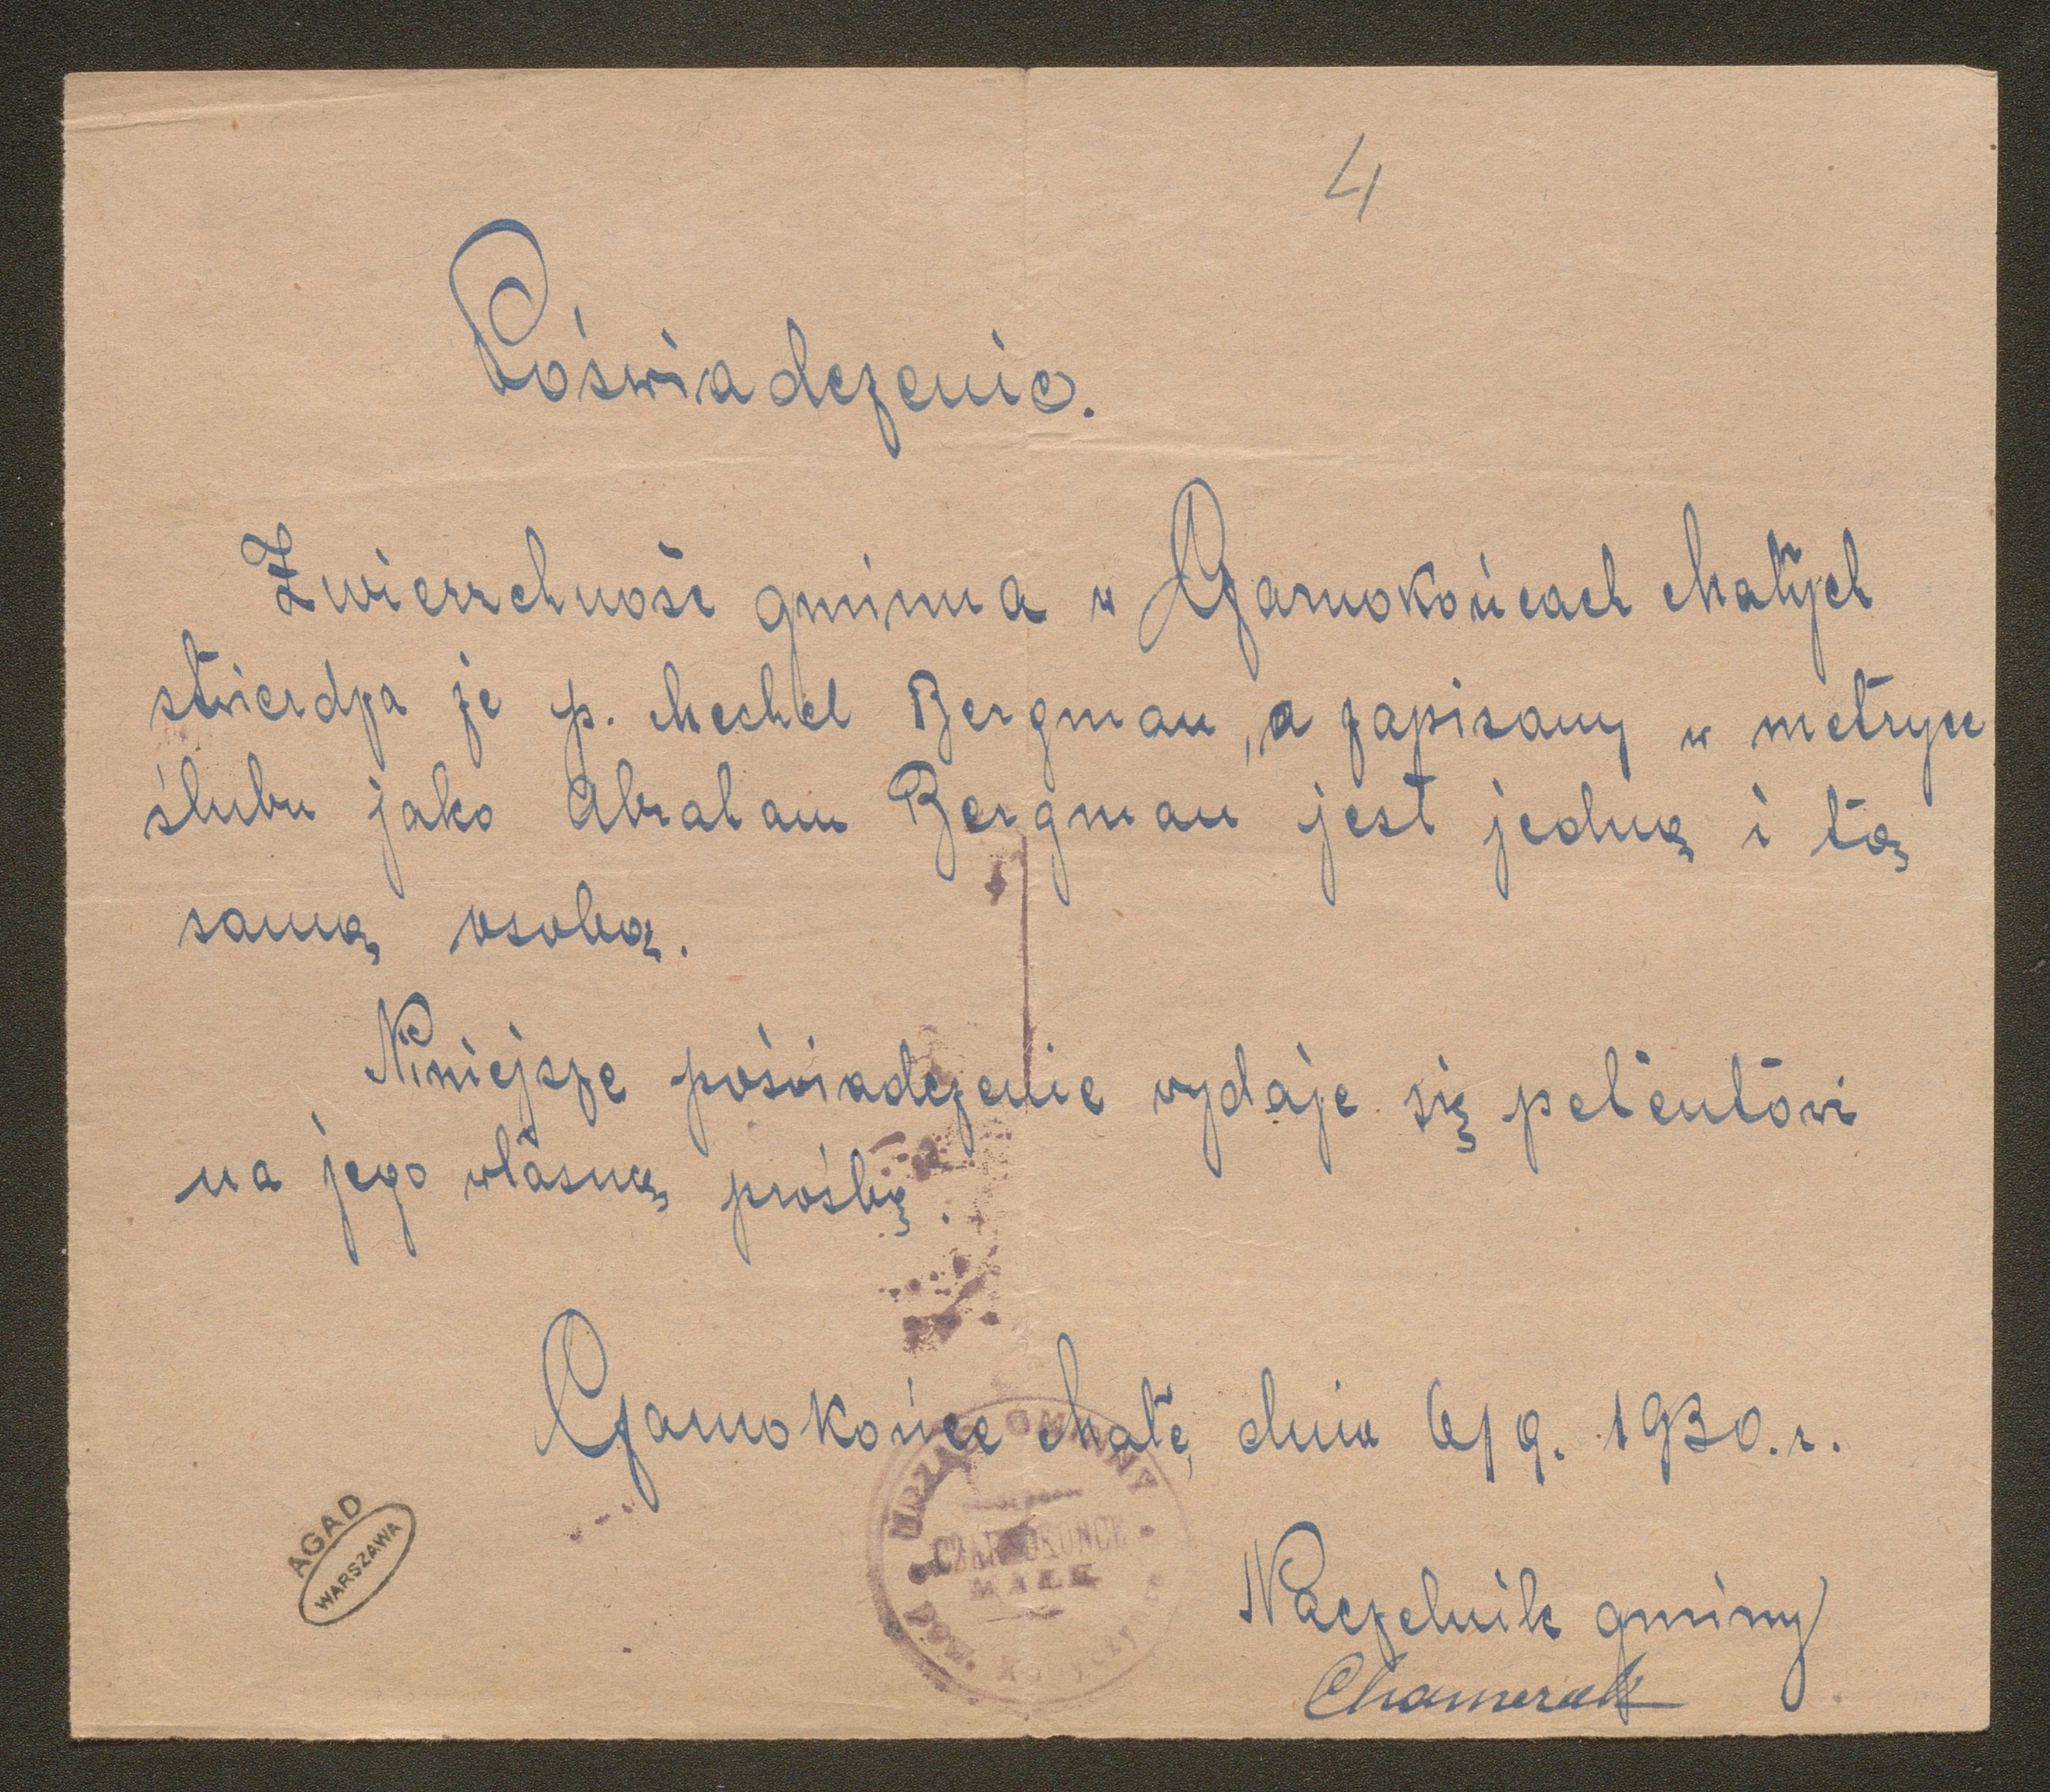 4
Poświadczenie.
Zwierzchność gminna w Czarnokońcach Małych
stwierdza że p. Mechel Bergman, a zapisany w metryce
ślubu jako Abraham Bergman jest jedną i tą
samą osobą.
Niniejsze poświadczenie wydaje się petentowi
na jego własną prośbę.
Czarnokońce Małe, dnia 6/9. 1930.r.
URZĄD GMINNY
CZARNOKOŃCE
MAŁE
AGAD
WARSZAWA
Naczelnik gminy